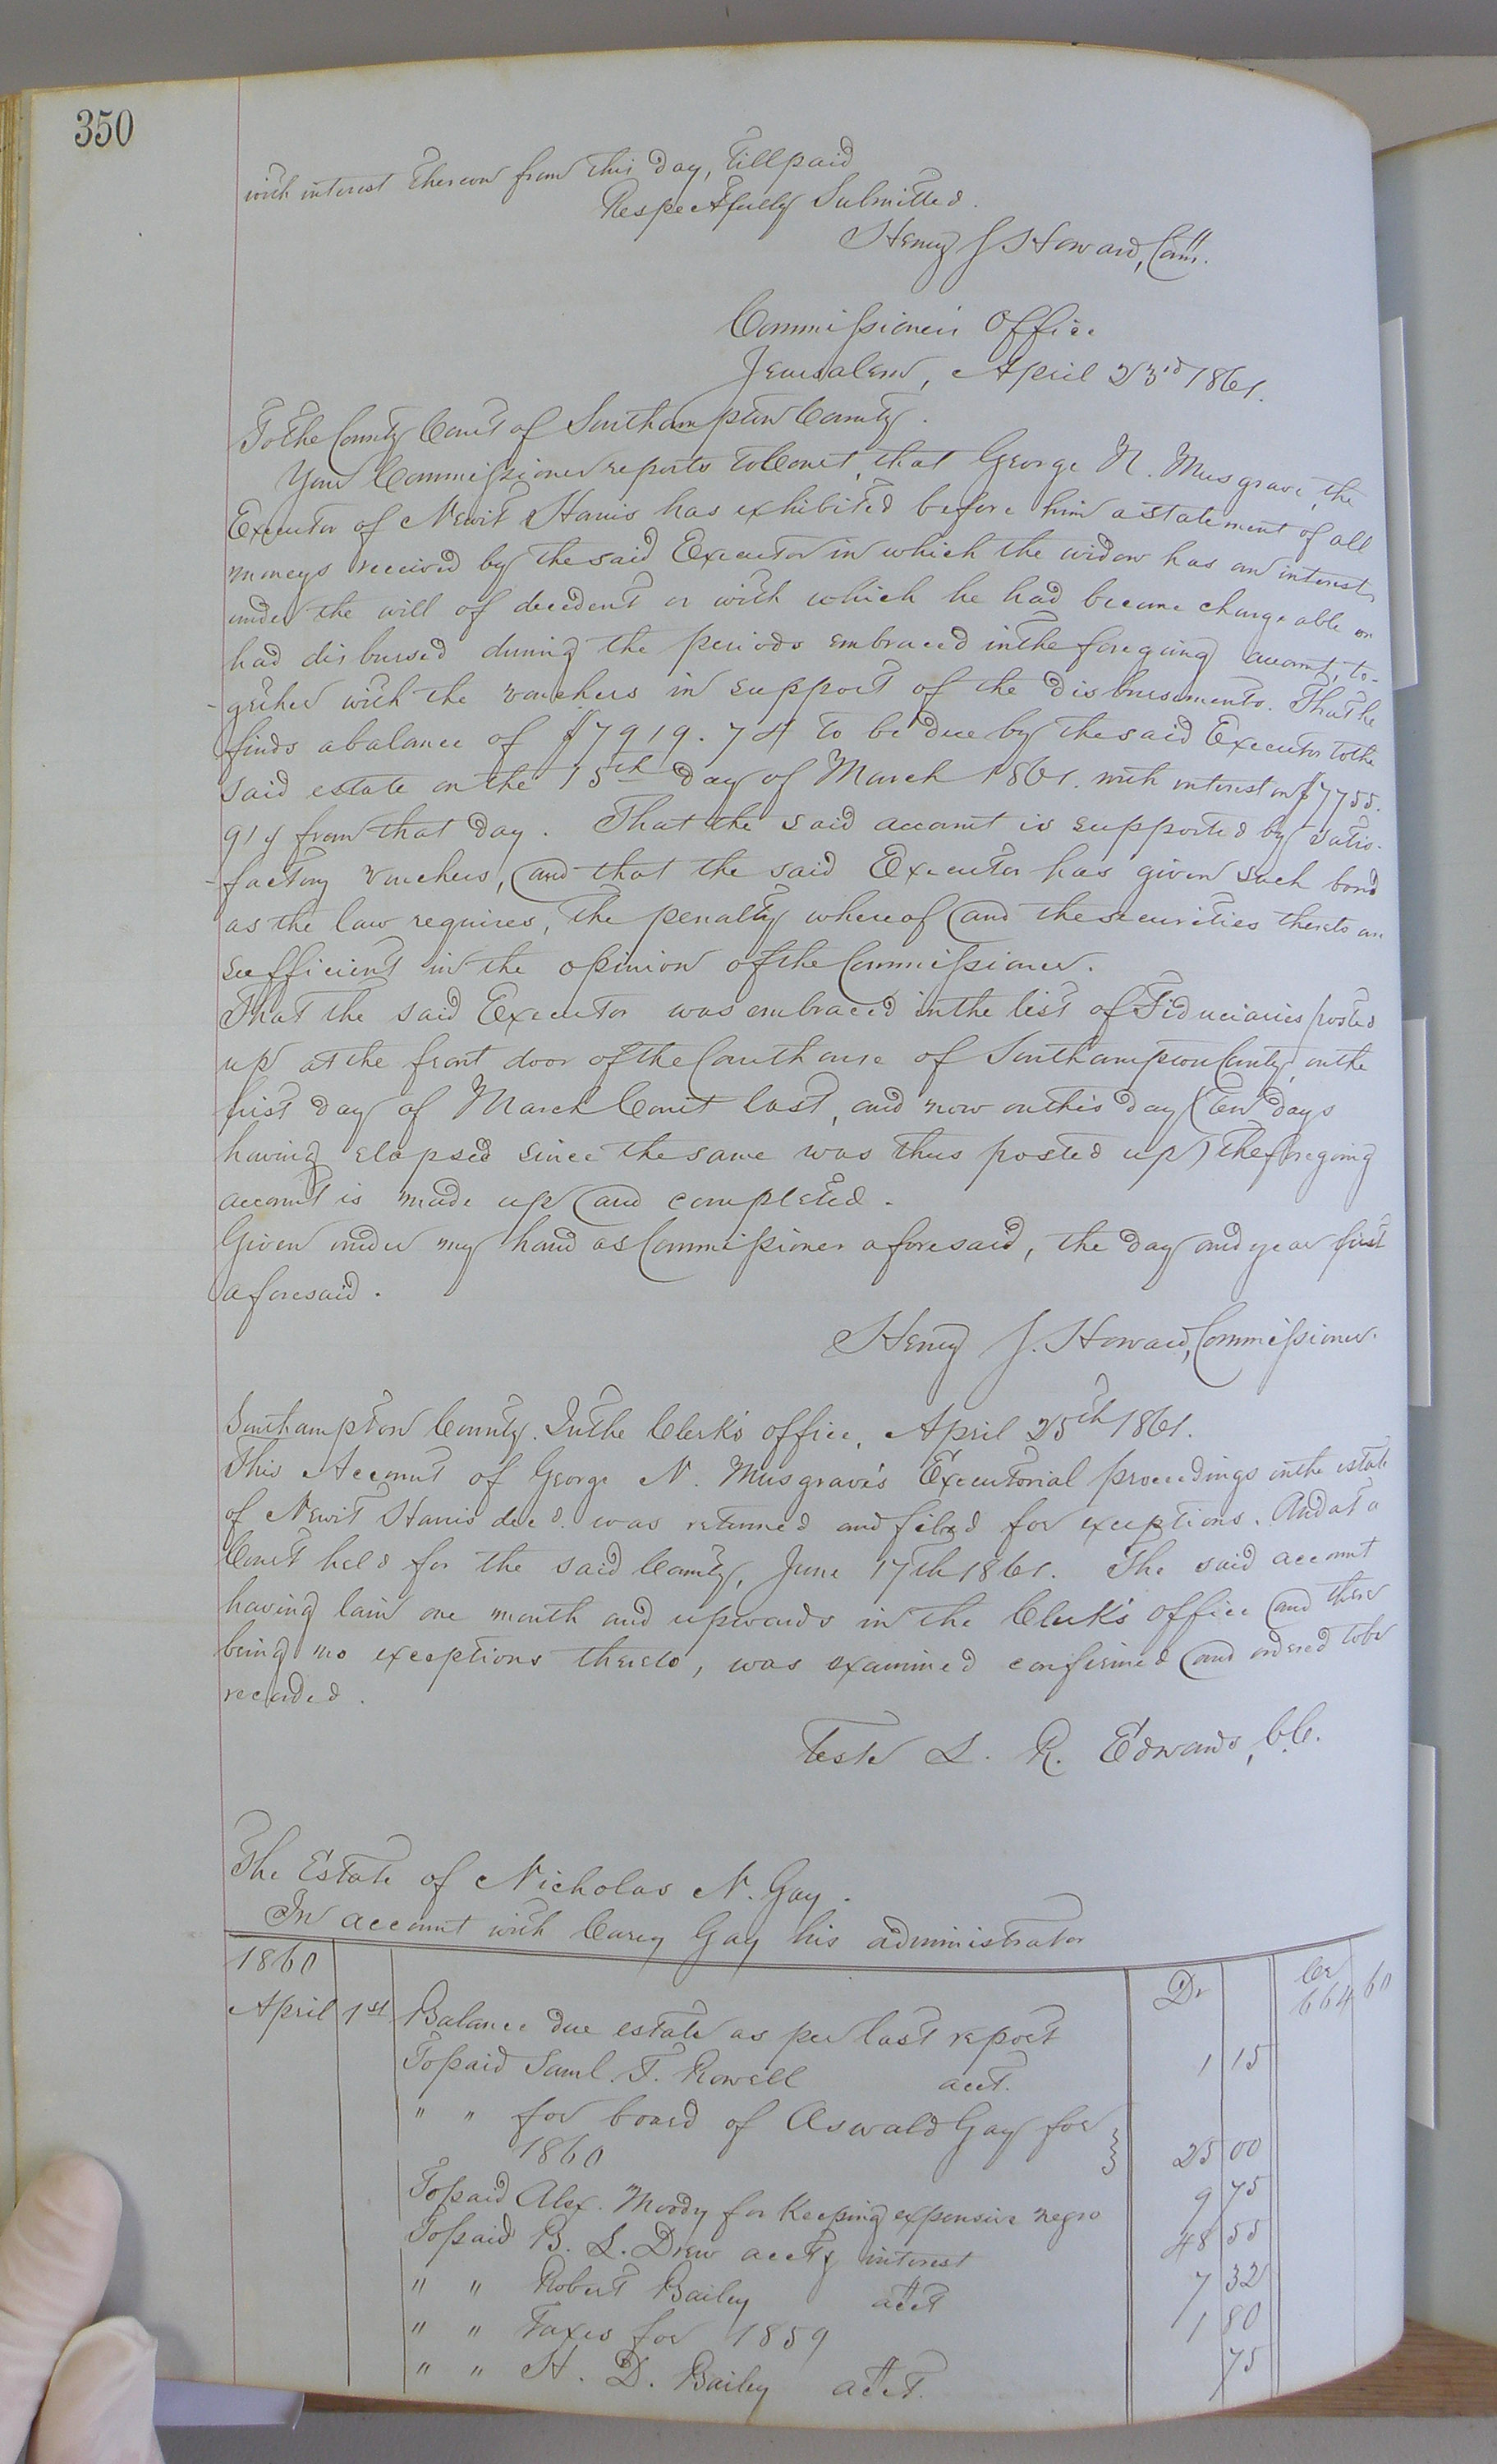 350
with interest thereon from this day, till paid
Respectfully Submitted.
Henry J Howard, Comr.
Commissioner's Office
Jerusalem, April 23rd 1861.
To the County Court of Southampton County.
Your Commissioner reports to Court, that George N. Musgrave, the
Executor of Newit Harris has exhibited before him a statement of all
moneys received by the said Executor in which the widow has an interest
under the will of decedent or with which he had become chargeable or
had disbursed during the periods embraced in the foregoing account, to-
-gether with the vouchers in support of the disbursements. That he
finds a balance of $7919.74 to be due by the said Executor to the
said estate on the 15th day of March 1861. with interest on $7755.
91 from that day. That the said account is supported by satis-
-factory vouchers, and that the said Executor has given such bond
as the law requires, the penalty whereof and the securities thereto are
sufficient in the opinion of the Commissioner.
That the said Executor was embraced in the list of Fiduciaries posted
up at the front door of the Courthouse of Southampton County, on the
first day of March Court last, and now on this day (ten days
having elapsed since the same was thus posted up) the foregoing
account is made up and completed.
Given under my hand as Commissioner aforesaid, the day and year first
aforesaid.
Henry J. Howard, Commissioner.
Southampton County. In the Clerk's office, April 25th 1861.
This Account of George N. Musgrave's Executorial proceedings in the estate
of Newit Harris decd. was returned and filed for exceptions. And at a
Court held for the said County, June 17th 1861. The said account
having lain one month and upwards in the Clerk's office and there
being no exceptions thereto, was examined confirmed and ordered to be
recorded.
Teste L. R. Edwards, C.C.
The Estate of Nicholas N. Gay.
In account with Carey Gay his administrator
1860 Dr Cr
April 1st Balance due estate as per last report 664 60
To paid Saml. F. Rowell acct. 1 15
" " for board of Oswald Gay for
1860 25 00
To paid Alex. Moody for Keeping expensive negro 9 75
To paid B. L. Drew acct & interest 48 55
" " Robert Bailey acct 7 32
" " Taxes for 1859 1 80
" " H. D. Bailey acct. 75